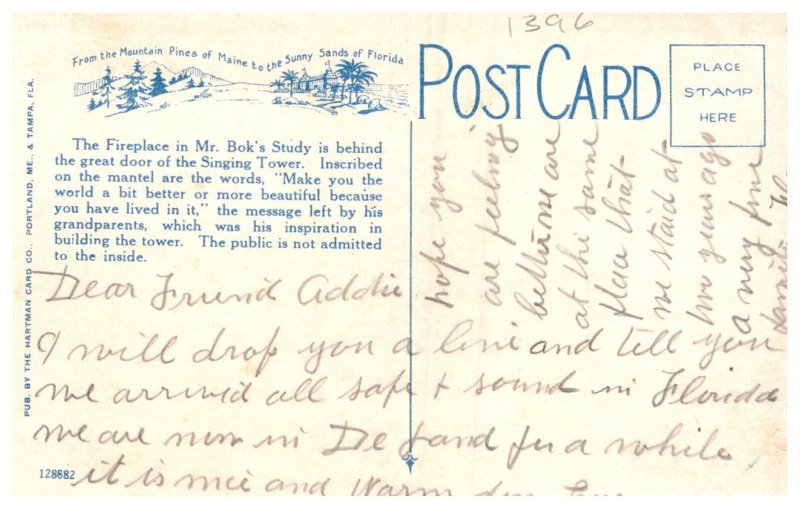 1396
From the Mountain Pines of Maine to the Sunny Sands of Florida
POST CARD
PLACE
STAMP
HERE
PUB. BY THE HARTMAN CARD CO., PORTLAND, ME., & TAMPA, FLA.
The Fireplace in Mr. Bok's Study is behind
the great door of the Singing Tower. Inscribed
on the mantel are the words, "Make you the
world a bit better or more beautiful because
you have lived in it," the message left by his
grandparents, which was his inspiration in
building the tower. The public is not admitted
to the inside.
Dear Friend Addie
I will drop you a line and tell you
we arrived all safe + sound in Florida
we are now in De Land for a while
it is nice and warm
128682
hope you
are feeling
better we are
at the same
place that
we staid at
two years ago
a very fine